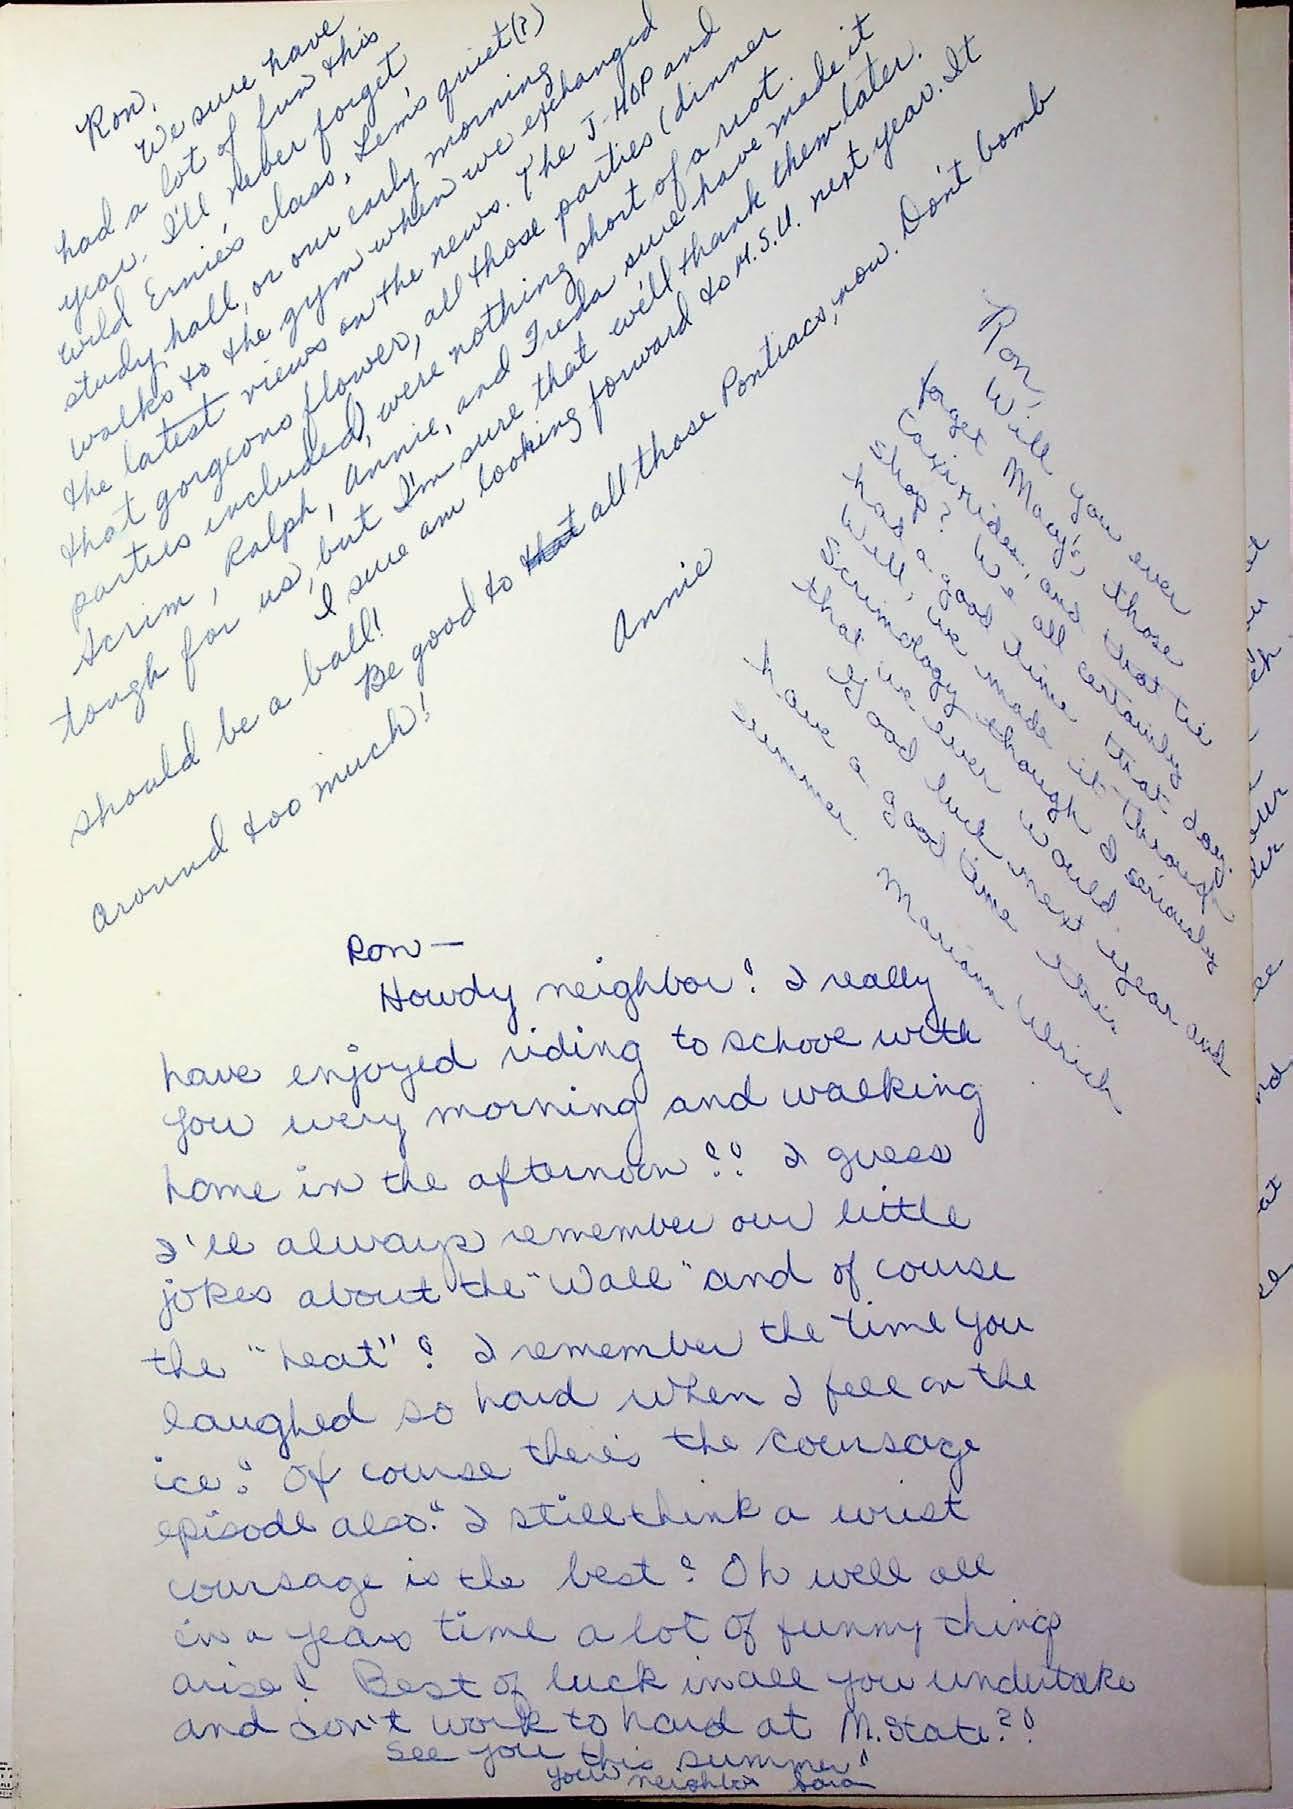 Ron,
We sure have
had a lot of fun this
year. I'll never forget
wild Ernie's class, Lem's quiet(?)
study hall, or our early morning
walks to the gym when we exchanged
the latest views on the news. The J-Hop and
that gorgeous flower, all those parties (dinner
parties included) were nothing short of a riot.
Scrim, Ralph, Annie, and Freda sure have made it
tough for us, but I'm sure that we'll thank them later.
I sure am looking forward to M.S.U. next year. It
should be a ball!
Be good to all those Pontiacs, now. Don't bomb
around too much!
Annie
Ron,
Will you ever
forget Macy's, those
and that tie
shop? We all certainly
had a good time that day.
Well, we made it through
Scrimology though I seriously
that we ever would
Good luck next year and
have a good time this
summer.
Mariann Ulrich
Ron—
Howdy neighbor! I really
have enjoyed riding to school with
you very morning and walking
home in the afternoon!! I guess
I'll always remember our little
jokes about the "Wall" and of course
the "heat"! I remember the time you
laughed so hard when I fell on the
ice! Of course there's the coursage
episode also! I still think a wrist
coursage is the best! Oh well all
in a years time a lot of funny things
arise! Best of luck in all you undertake
and don't work to hard at M. State?!
See you this summer!
Your neighbor Sara